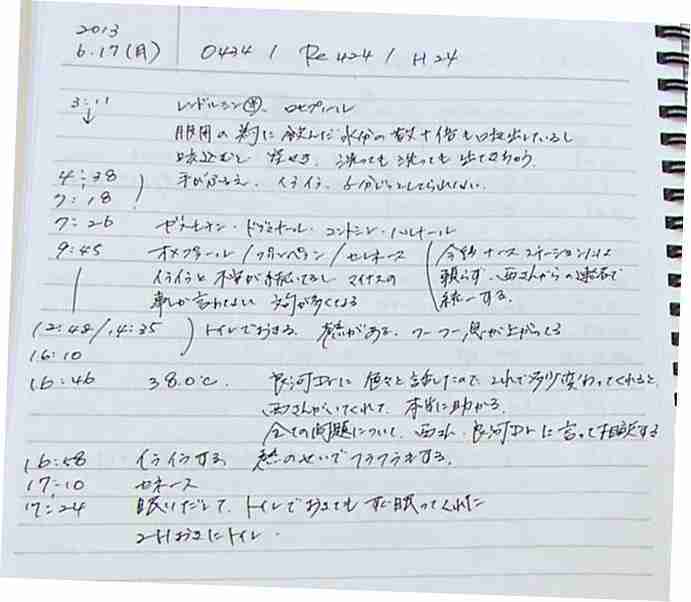 2013
6.17(月) 0434 / Re 424 / H 24
3:11 レンドルミン㊥、ロゼプール
↓ 服用の為に飲んだ水分の数十倍も口は出しているし
咳込むし 洗っても洗っても出てきちゃう
4:38 手がふるえ、イライラ、
7:18
7:26 ・コントミン・ハルナール
9:45 オメプラール / フルペラン / セレネース 今後ナースステーションには
イライラと不安が 続いてるし マイナスの 頼らず、西さんからの連絡で
事しか言わない 方が多くなる 統一する。
12:48/14:35 トイレでおきる、熱がある、フーフー息が上がってる
16:10
16:46 38.0℃. 良河Drに色々と話したので、これで多少変わってくれると、
西さんがいてくれて、本当に助かる
全ての問題について、西さん、良河Drに言って相談する
16:58 イライラする、熱のせいでフラフラする。
17:10 セネース
17:24 眠りだして、トイレでおきてもすぐ眠ってくれた
2Hおきにトイレ.